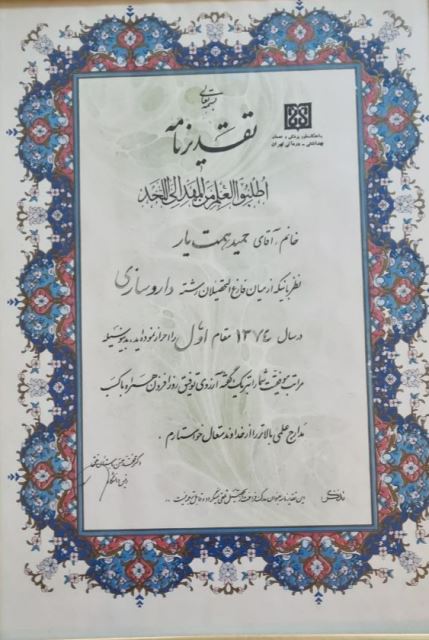 بسمه تعالی
تقدیرنامه
دانشگاه علوم پزشکی و خدمات
بهداشتی - درمانی تهران
اطلبوا العلم من المهد الی اللحد
خانم / آقای حمید همت یار
نظر باینکه از میان فارغ التحصیلان رشته داروسازی
در سال ۱۳۷۴ مقام اول را احراز نموده اید، بدینوسیله
مراتب موفقیت شما را تبریک گفته آرزوی توفیق روز افزون همراه با کسب
مدارج علمی بالاتر را از خداوند متعال خواستارم.
دکتر
رئیس دانشگاه
این تقدیرنامه بعنوان مدرک فراغت از تحصیل تلقی نمیگردد و قابل ترجمه نیست